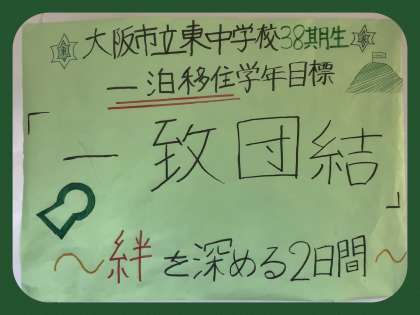 大阪市立東中学校38期生
一泊移住学年目標
「一致団結」
〜絆を深める2日間〜